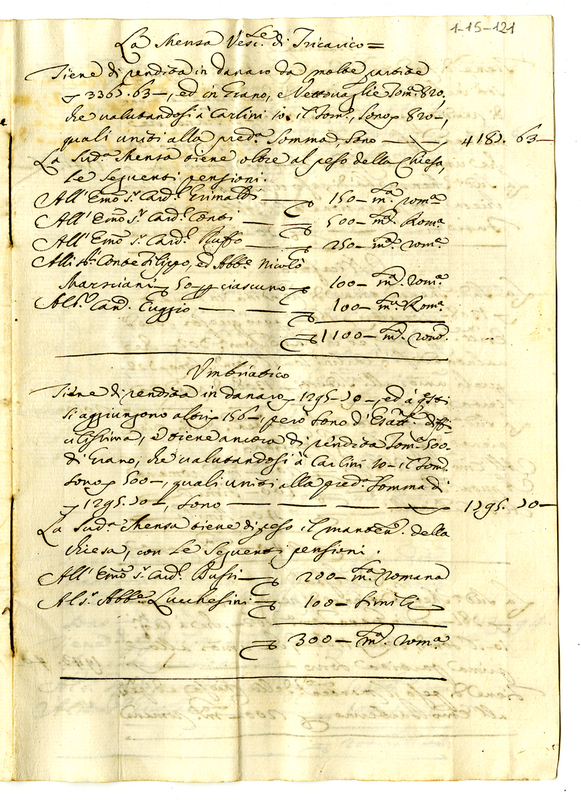 1-15-121
La Mensa Vesc.le di Tricarico=
Tiene di rendita in danaro da molte partite
3365.63—, ed in Grano, e Vettovaglie Tom. 820,
che valutandosi à Carlini 10. il Tom., sono 820—,
quali uniti alla pred.a Somma, sono — 4185. 63—
La Sud.a Mensa tiene oltre al peso della Chiesa,
le seguenti pensioni.
All' Em̃o S.r Card.l Grimaldi — 150— m.ta rom.a
All' Em̃o S.r Card.l Conti — 500— m.ta Rom.a
All' Em̃o S.r Card.l Ruffo — 250— m.ta rom.a
Alli Conte Filippo, ed Abb.e Nicolò
Marsciani 50 ciascuno 100— m.ta rom.a
Al S.r Cand. — — — 100— m.ta Rom.a
1100— m.ta rom.a
Umbriatico
Tiene di rendita in danaro 1295.70—, ed à
si aggiungono altri 156—, però sono d'Esatt. diffi
cilissima, e tiene ancora di rendita Tom. 500—
di Grano, che valutandosi à Carlini 10— il Tom.
sono 500—, quali uniti alla pred.a Somma di
1295.70—, sono — — — 1795. 70—
La Sud.a Mensa tiene di peso il manten.o della
Chiesa, con le seguenti pensioni.
All' Em̃o S.r Card.l Bussi — 200— m.ta romana
Al S.r Abb.e Lucchesini — 100— simili
300— m.ta rom.a